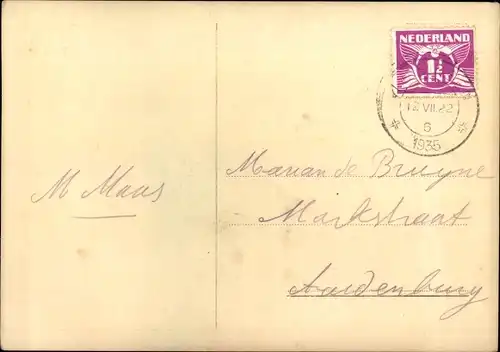 NEDERLAND
1½
CENT
VII.22
6
1935
M Maas
Marian de Bruyne
Markstraat
Aardenburg